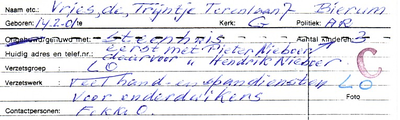 Naam etc.: Vries, de, Trijntje Terenlaan 7 Bierum
Geboren: 14.2.01 te Kerk: G Politiek: AR
Ongehuwd/gehuwd met: Steenhuis Aantal kinderen: 3
Huidig adres en telef.nr.: eerst met Pieter Nieboer
daarvoor " Hendrik Nieboer C
Verzetsgroep: LO
Verzetswerk veel hand- en spandiensten LO
voor onderduikers Foto
Contactpersonen: Fekko.